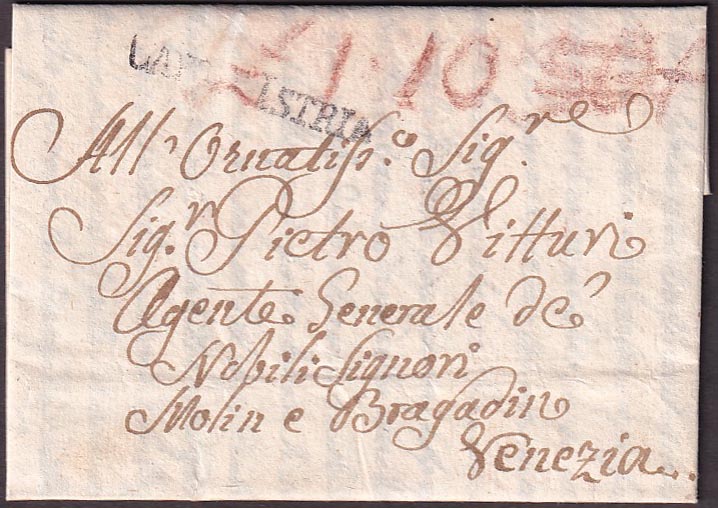 CAPO D'ISTRIA
1·10
All'Ornatiss.º Sig.re
Sig.r Pietro Vitturi
Agente Generale dé
Nobili Signori
Molin e Bragadin
Venezia